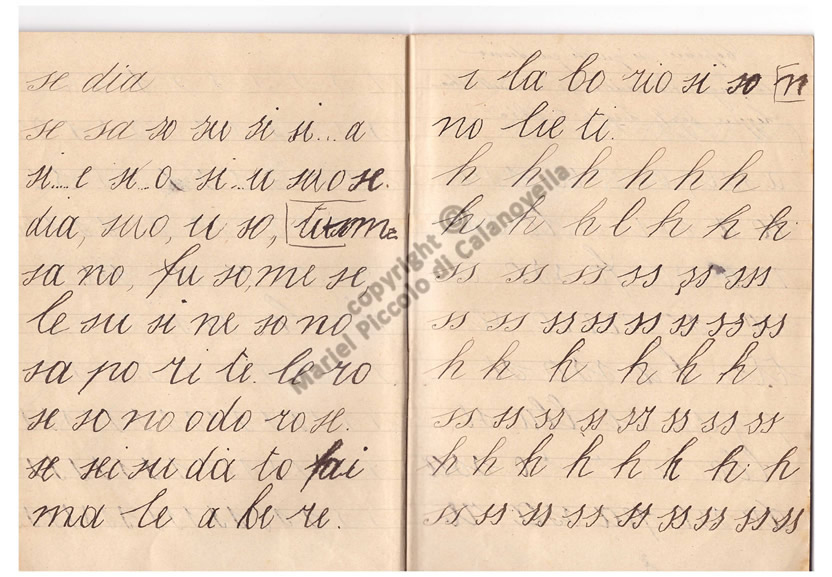 se dia
se sa so su si si... a
si.... e si...o si...u suo se.
dia, suo, u so,
sa no, fu so, me se,
le su si ne so no
sa po ri te. le ro
se so no o do ro se.
se sei su da to fai
ma le a be re.
i la bo rio si so n
no lie ti.
h h h h h h h
h h h l h h h
ss ss ss ss ss sss
ss ss ss ss ss ss ss ss
h h h h h h
ss ss ss ss ss ss ss ss
h h h h h h h h
ss ss ss ss ss ss ss ss ss
copyright ©
Mariel Piccolo di Calanovella